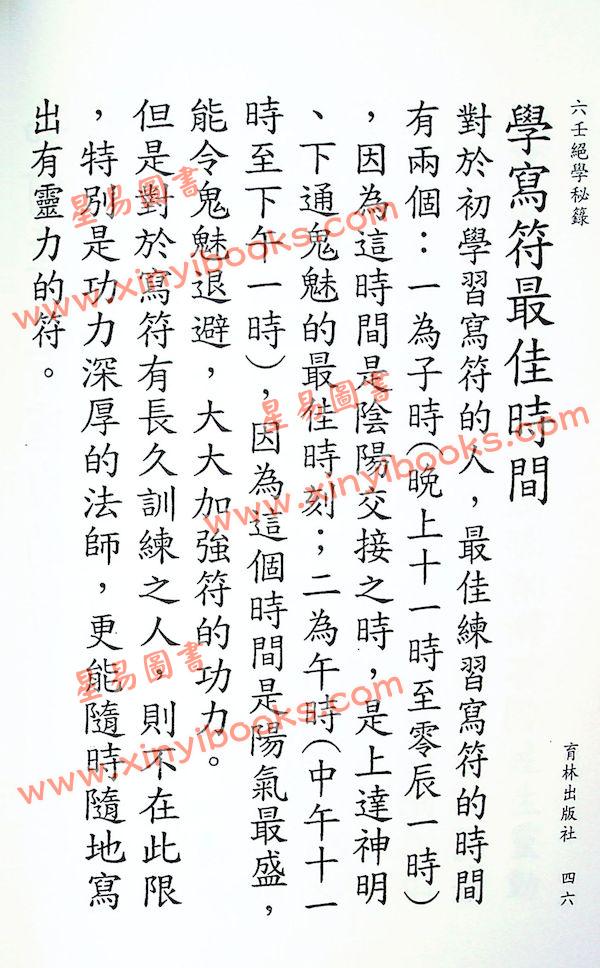 六壬絕學秘籙
育林出版社 四六
學寫符最佳時間
對於初學習寫符的人，最佳練習寫符的時間
有兩個：一為子時(晚上十一時至零辰一時)
，因為這時間是陰陽交接之時，是上達神明
、下通鬼魅的最佳時刻；二為午時(中午十一
時至下午一時)，因為這個時間是陽氣最盛，
能令鬼魅退避，大大加強符的功力。
但是對於寫符有長久訓練之人，則不在此限
，特別是功力深厚的法師，更能隨時隨地寫
出有靈力的符。
星易圖書
www.xinyibooks.com
星易圖書
www.xinyibooks.com
星易圖書
www.xinyibooks.com